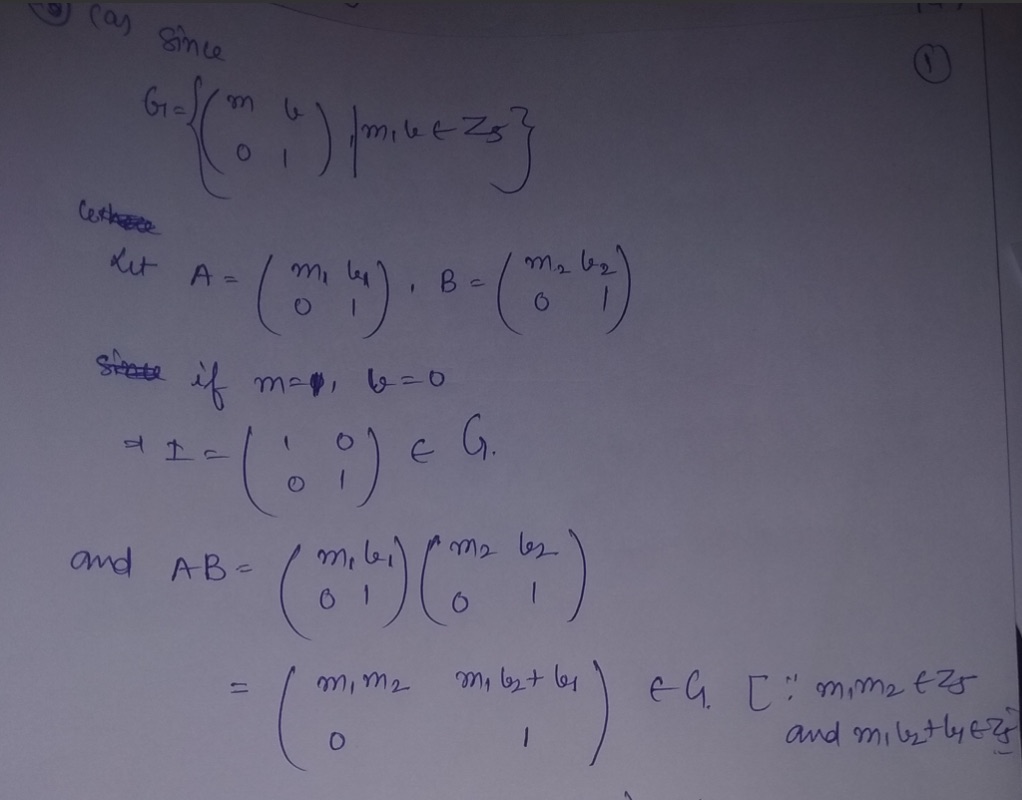 (a) Since
G = { ( m b
0 1 ) | m, b ∈ Z5 }
Let A = ( m1 b1
0 1 ), B = ( m2 b2
0 1 )
if m=1, b=0
⇒ I = ( 1 0
0 1 ) ∈ G.
and AB = ( m1 b1
0 1 ) ( m2 b2
0 1 )
= ( m1m2 m1b2+b1
0 1 ) ∈ G. [∵ m1m2 ∈ Z5
and m1b2+b1 ∈ Z5]
①